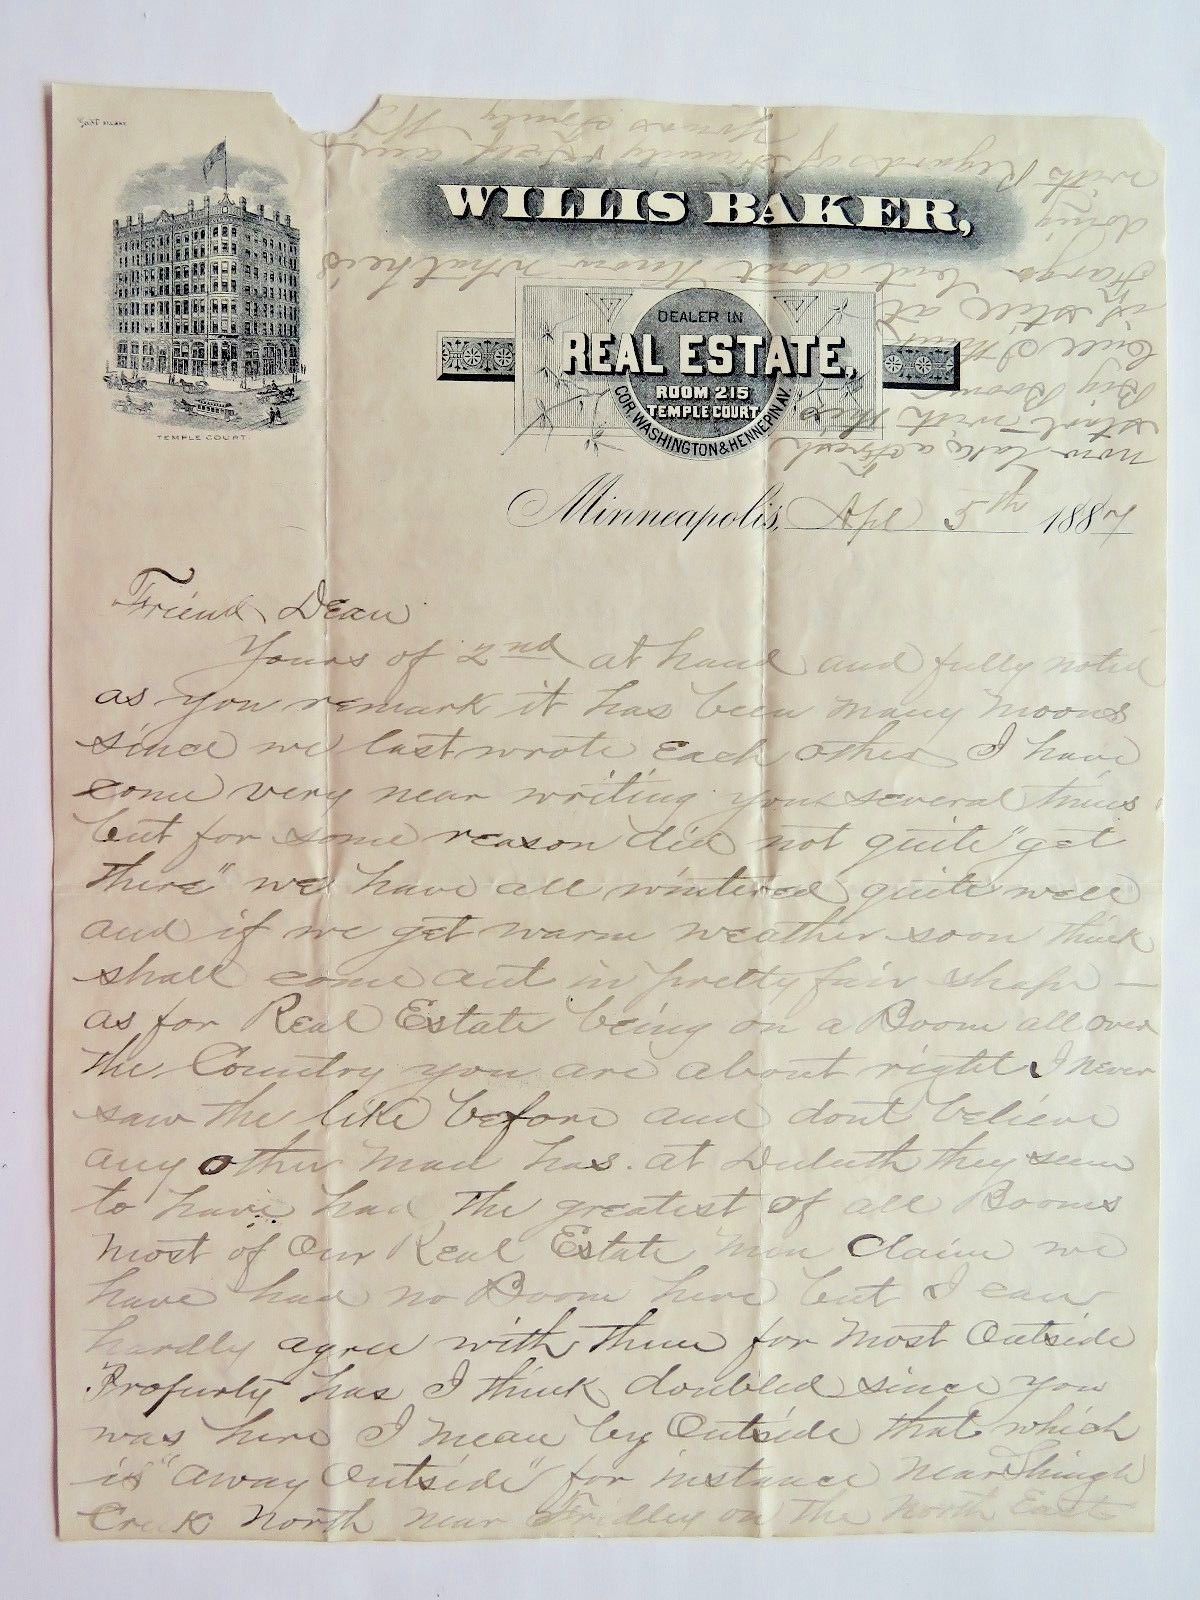 WILLIS BAKER,
DEALER IN
REAL ESTATE,
ROOM 215
TEMPLE COURT
COR. WASHINGTON & HENNEPIN AV.
TEMPLE COURT.
Minneapolis, Apl 5th 1887
Friend Dean
Yours of 2nd at hand and fully noted
as you remark it has been many moons
since we last wrote Each other I have
come very near writing you several times
but for some reason did not quite "get
there" we have all wintered quite well
and if we get warm weather soon think
shall come out in pretty fair shape —
as for Real Estate being on a Boom all over
the Country you are about right I never
saw the like before and dont believe
any other man has. at Duluth they seem
to have had the greatest of all Booms
most of Our Real Estate men Claim we
have had no Boom here but I can
hardly agree with them for most Outside
Property has I think doubled since you
was here I mean by Outside that which
is "away Outside" for instance near Shingle
Creek North near Fridley on the North East
now take a Fresh
start with this
Big Boom
Will I think
is still at
Fargo but dont know what he is
doing
with Regards of Family & Self
Yours Truly